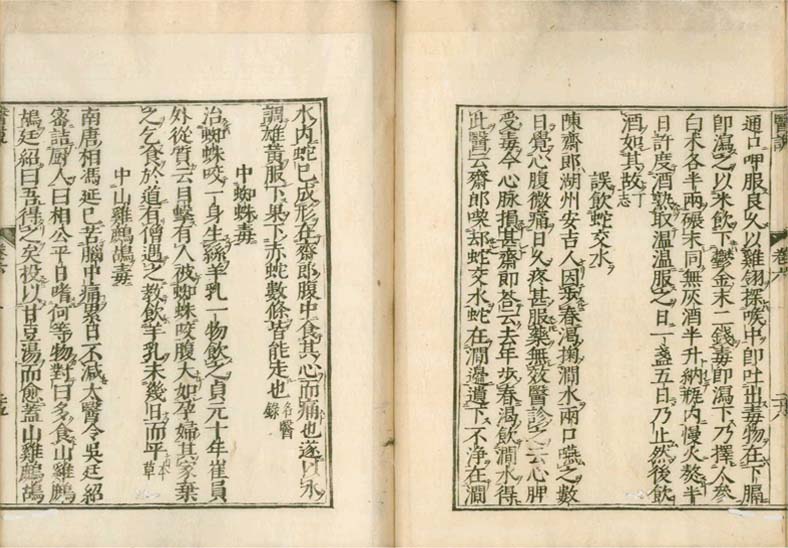 通口呷服良久以雞翎探喉中即吐出毒物在下膈
即瀉之以米飲下鬱金末二錢毒即瀉下乃擇人參
白朮各半兩碾末同無灰酒半升納瓶内慢火熬半
日許度酒熟取溫溫服之日一盞五日乃止然後飲
酒如其故丁志
誤飲蛇交水
陳齋郎湖州安吉人因步春渴掬澗水兩口嚥之數
日覺心腹微痛日久疼甚服藥無效醫診之云心脾
受毒今心脉損甚齋郎荅云去年步春渴飲澗水得
此醫云齋郎喫却蛇交水蛇在澗邊遺下不淨在澗
水内蛇已成形在齋郎腹中食其心而痛也遂以水
調雄黄服下果下赤蛇數條皆能走也名醫錄
中蜘蛛毒
治蜘蛛咬一身生絲羊乳一物飲之貞元十年崔員
外從質云目擊有人被蜘蛛咬腹大如孕婦其家棄
之乞食於道有僧遇之教飲羊乳未幾日而平本草
中山雞鷓鴣毒
南唐相馮延巳苦腦中痛累日不減太醫令吳廷紹
密詰厨人曰相公平日嗜何等物對曰多食山雞鷓
鴣廷紹曰吾得之矣投以甘豆湯而愈蓋山雞鷓鴣